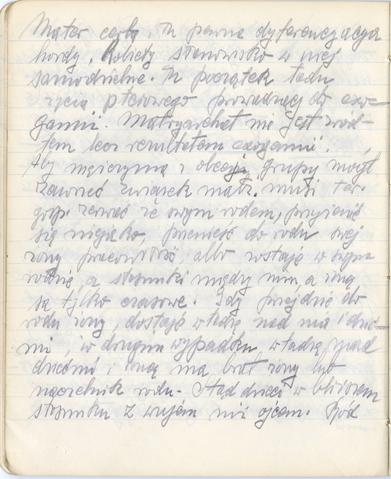 Mater certa. Tu pewne dyferencjacja
hordy, kobiety stanowisko w niej
samodzielne. Tu początek ładu
życia płciowego prowadzącej do egzo-
gamii. Matryarchat nie jest źród-
łem lecz rezultatem exogamii.
Aby mężczyzna z obcej grupy mógł
zawrzeć związek małż. musi
zerwać ze swym rodem, przyjąć
się miękko, przenieść do rodu swej
żony, pracować albo zostaje w swym
rodzie, a stosunki między nim, a żoną
są tylko czasowe. Gdy przejdzie do
rodu żony, dostaje władzę nad nią i dzieć-
mi, w drugim wypadku władzę nad
dziećmi i żoną ma brat żony lub
naczelnik rodu. Stąd dzieci w bliższem
stosunku z wujem niż ojcem. Ród